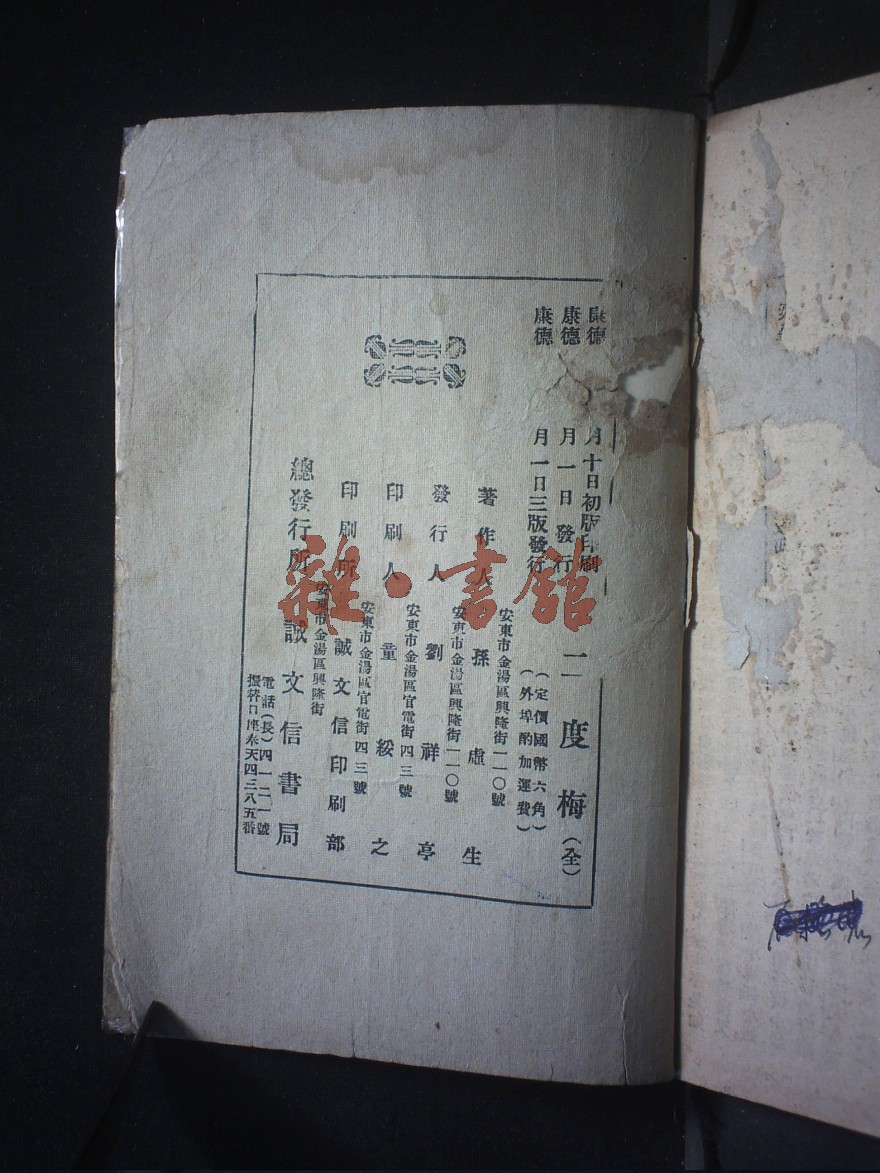 康德
月十日初版印刷
康德
月一日發行
康德
月一日三版發行
二度梅(全)
(定價國幣六角)
(外埠酌加運費)
安東市金湯區興隆街一一〇號
著作人 孫虛生
安東市金湯區興隆街一一〇號
發行人 劉祥亭
安東市金湯區官電街四三號
印刷人 童綏之
安東市金湯區官電街四三號
印刷所 誠文信印刷部
安東市金湯區興隆街
總發行所 誠文信書局
電話(長)四一二一號
振替口座奉天四三八五番
雜·書館